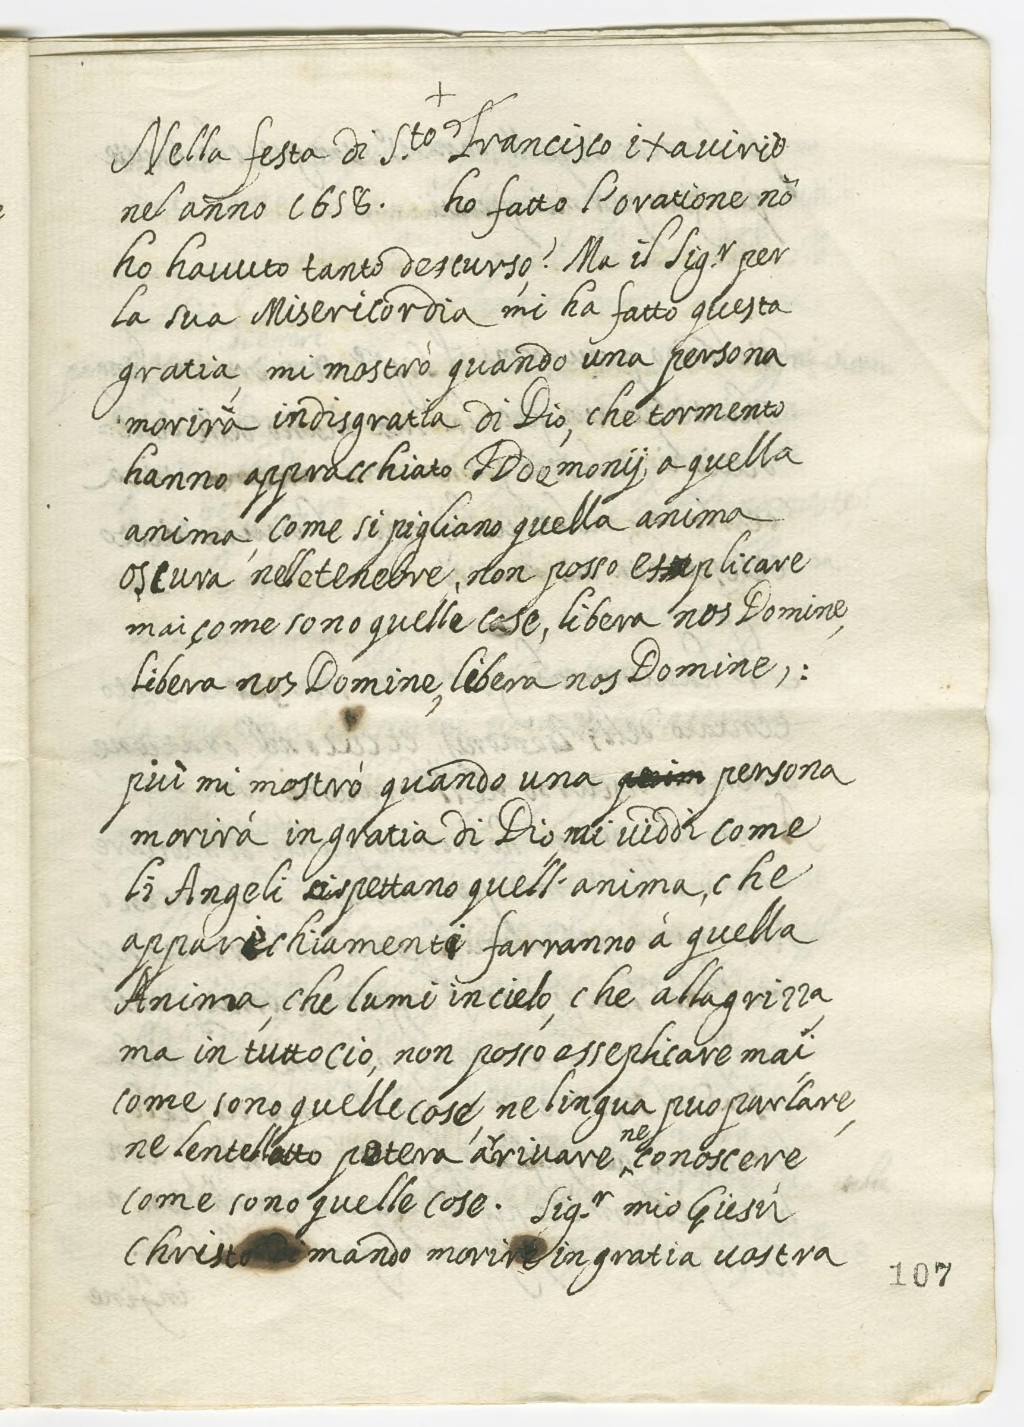 +
Nella festa di S.to Francisco ixavirio
nel anno 1658. ho fatto l'oratione nõ
ho havuto tanto descurso! Ma il Sig.r per
la sua Misericordia mi ha fatto questa
gratia, mi mostrò quando una persona
morirà indisgratia di Dio, che tormento
hanno appracchiato Ddemonij, a quella
anima, come si pigliano quella anima
oscura nelletenebre, non posso esseplicare
mai come sono quelle cose, libera nos Domine,
libera nos Domine, libera nos Domine,:
più mi mostrò quando una persona
morirà in gratia di Dio, mi viddi come
li Angeli rispettano quell'anima, che
apparichiamenti farranno à quella
Anima, che lumi in cielo, che allagrizza,
ma in tutto cio, non posso esseplicare mai
come sono quelle cose, ne lingua puo parlare,
ne lentellatto potera arrivare, ne conoscere
come sono quelle cose. Sig.r mio Giesù
Christo dimando morire in gratia vostra
107